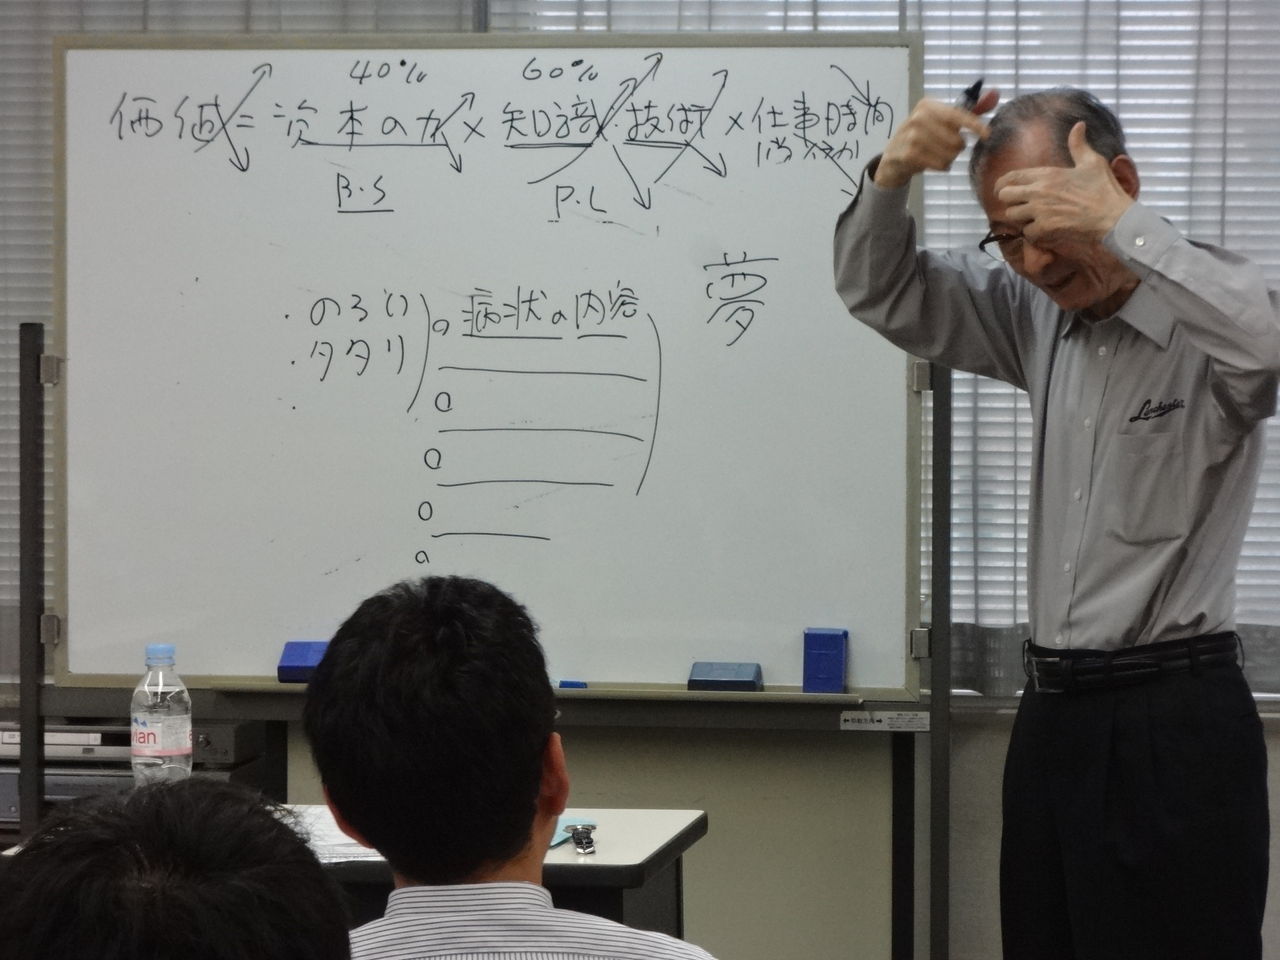 40% 60%
価値=資本の力×知識・技術×仕事時間
B.S P.L
・のろい
・タタリ
・
o 病状の内容
o
o
o
o
夢
Lanchester
vian